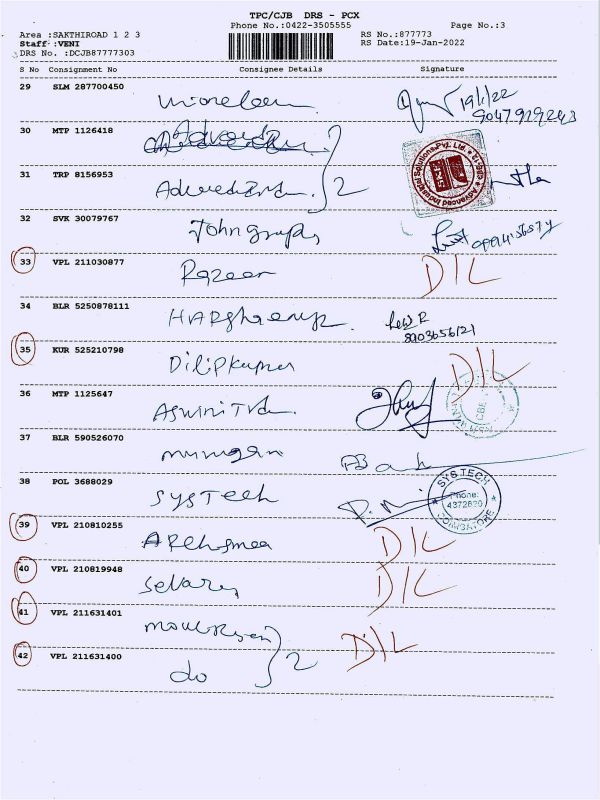 TPC/CJB DRS - PCX
Phone No.:0422-3505555 Page No.:3
Area :SAKTHIROAD 1 2 3 RS No.:877773
Staff :VENI RS Date:19-Jan-2022
DRS No. :DCJB87777303
S No Consignment No Consignee Details Signature
29 SLM 287700450
19/1/22
9047929243
30 MTP 1126418
31 TRP 8156953 2
Advanced Industrial Solutions Pvt. Ltd.
32 SVK 30079767 John
33 VPL 211030877 Razeer D/L
34 BLR 5250878111
8903656121
35 KUR 525210798 Dilipkumar D/L
36 MTP 1125647 Aswini
CBE
37 BLR 590526070 murugan
38 POL 3688029 sysTech
SYS TECH
Phone:
4372820
COIMBATORE
39 VPL 210810255 D/L
40 VPL 210819948 D/L
41 VPL 211631401 D/L
42 VPL 211631400 do 2